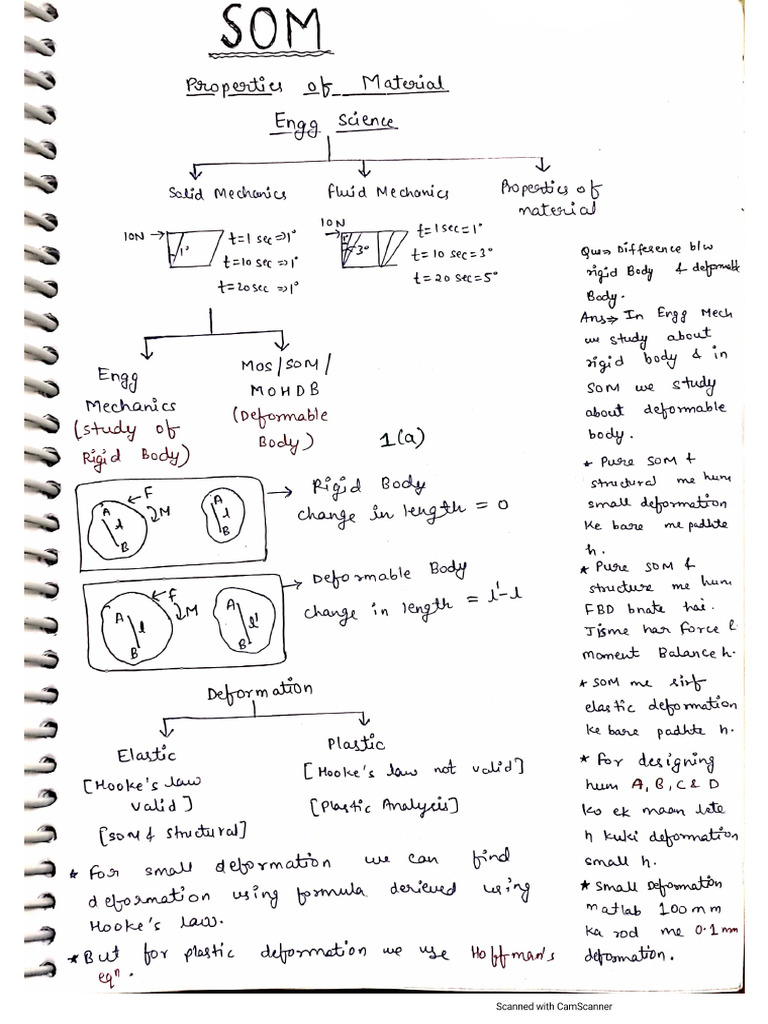 SOM
Properties of Material
Engg Science
Solid Mechanics
Fluid Mechanics
Properties of
material
10N
1°
t=1 sec ⇒1°
t=10 sec ⇒1°
t=20 sec ⇒1°
10N
1°
3°
t=1sec=1°
t=10 sec=3°
t=20 sec=5°
Engg
Mechanics
(Study of
Rigid Body)
MOS/SOM/
MOHDB
(Deformable
Body)
1(a)
A
l
B
F
M
A
l
B
Rigid Body
change in length = 0
A
l
B
F
M
A
l'
B
Deformable Body
change in length = l'-l
Deformation
Elastic
[Hooke's law
valid]
[SOM & structural]
Plastic
[Hooke's law not valid]
[Plastic Analysis]
* For small deformation we can find
deformation using formula derieved using
Hooke's law.
* But for plastic deformation we use Hoffman's
eqⁿ.
Que⇒ Difference b/w
rigid Body & deformable
Body.
Ans⇒ In Engg Mech
we study about
rigid body & in
SOM we study
about deformable
body.
* Pure SOM &
structural me hum
small deformation
ke bare me padhte
h.
* Pure SOM &
structure me hum
FBD bnate hai.
Jisme har Force &
moment Balance h.
* SOM me sirf
elastic deformation
ke bare padhte h.
* For designing
hum A, B, C & D
ko ek maan lete
h kuki deformation
small h.
* Small Deformation
matlab 100 mm
ka rod me 0.1 mm
deformation.
Scanned with CamScanner